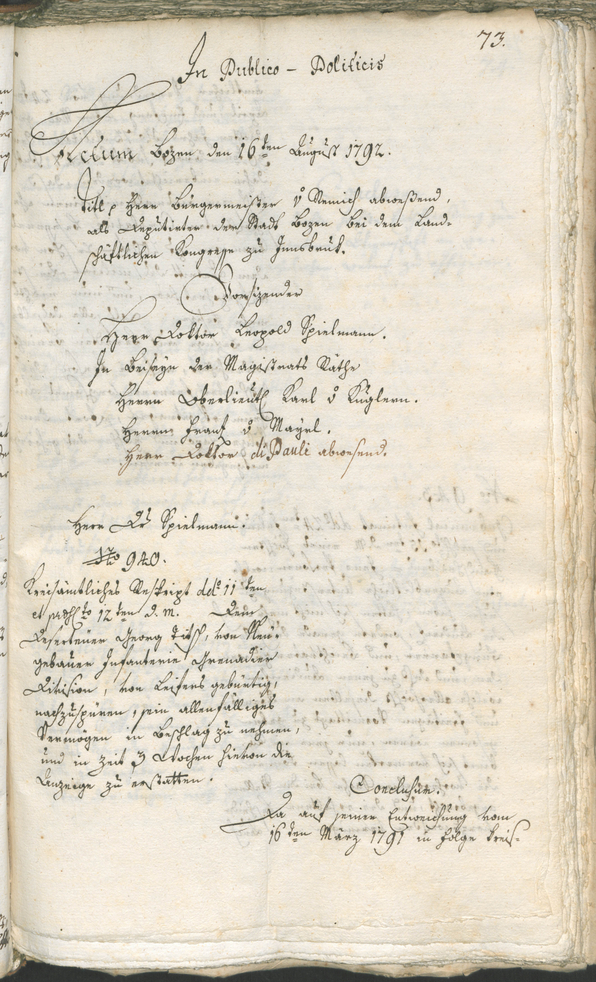 73.
In Publico-Politicis
Actum Bozen den 16ten August 1792.
Titl. Herr Bürgermeister v Remich abwesend,
als Deputirter der Stadt Bozen bei dem Land-
schäftlichen Kongresse zu Innsbruk.
Vorsizender
Herr Doktor Leopold Spielmann.
In Beiseyn der Magistrats Räthe
Herrn Oberlieut. Karl v Küglern.
Herrn Franz v Mayrl.
Herr Doktor di Pauli abwesend.
Herr Dr Spielmann.
Nro 940.
Kreisämtliches Reskript ddo 11ten
et 12ten d. M. Dem
Deserteur Georg, von Neu-
gebauer Infanterie Grenadier
Division, von Leifers gebürtig,
nachzuspüren, sein allenfälliges
Vermögen in Beschlag zu nehmen,
und in Zeit 3 Wochen hievon die
Anzeige zu erstatten.
Conclusum.
Da auf seiner Entweichung vom
16ten März 1791 in Folge kreis-